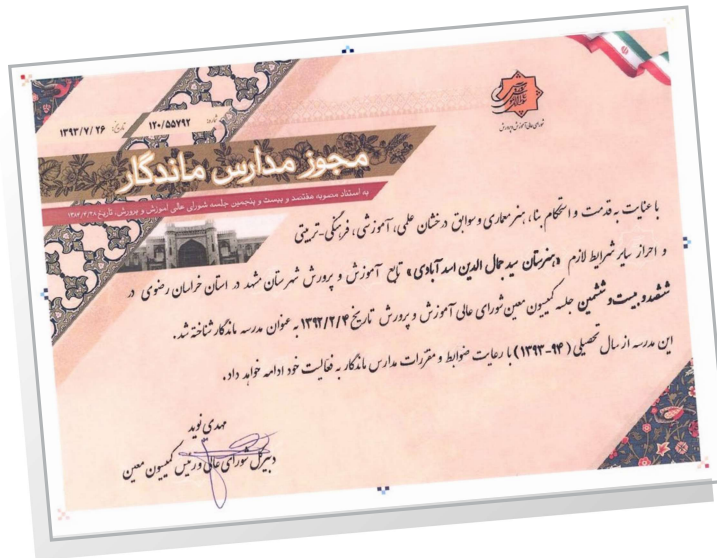 شورای عالی آموزش و پرورش
شماره: ۱۲۰/۵۵۷۹۲
تاریخ: ۱۳۹۳/۷/۲۶
مجوز مدارس ماندگار
به استناد مصوبه هفتصد و بیست و پنجمین جلسه شورای عالی آموزش و پرورش، تاریخ ۱۳۸۴/۴/۲۸
با عنایت به قدمت و استحکام بنا، هنر معماری و سوابق درخشان علمی، آموزشی، فرهنگی-تربیتی
و احراز سایر شرایط لازم «هنرستان سید جمال الدین اسد آبادی» تابع آموزش و پرورش شهرستان مشهد در استان خراسان رضوی در
ششصد و بیست و ششمین جلسه کمیسیون معین شورای عالی آموزش و پرورش تاریخ ۱۳۹۲/۲/۴ به عنوان مدرسه ماندگار شناخته شد.
این مدرسه از سال تحصیلی (۹۴-۱۳۹۳) با رعایت ضوابط و مقررات مدارس ماندگار به فعالیت خود ادامه خواهد داد.
مهدی نوید
دبیرکل شورای عالی و رئیس کمیسیون معین